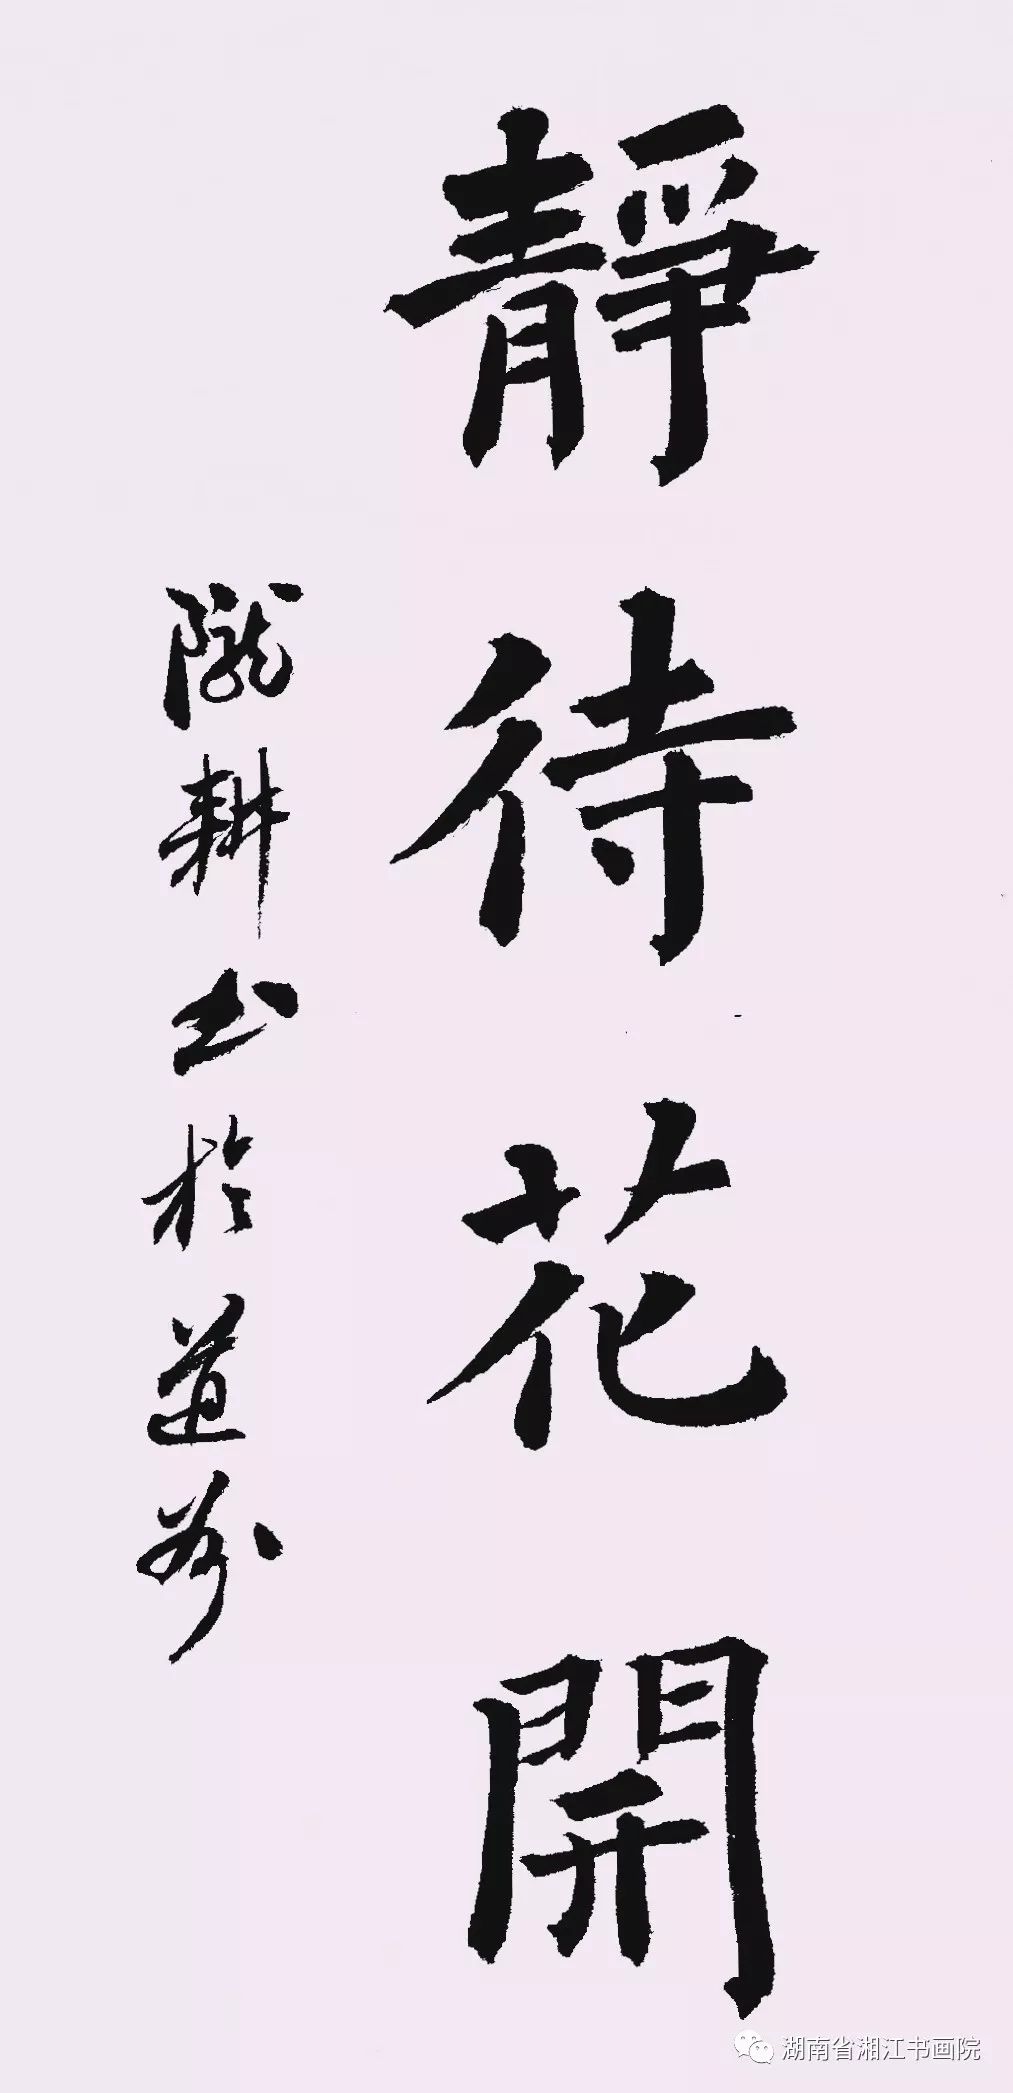 靜待花開
隴耕书於道州
湖南省湘江书画院